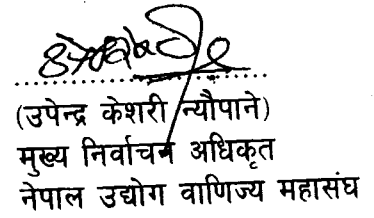 (उपेन्द्र केशरी न्यौपाने)
मुख्य निर्वाचन अधिकृत
नेपाल उद्योग वाणिज्य महासंघ